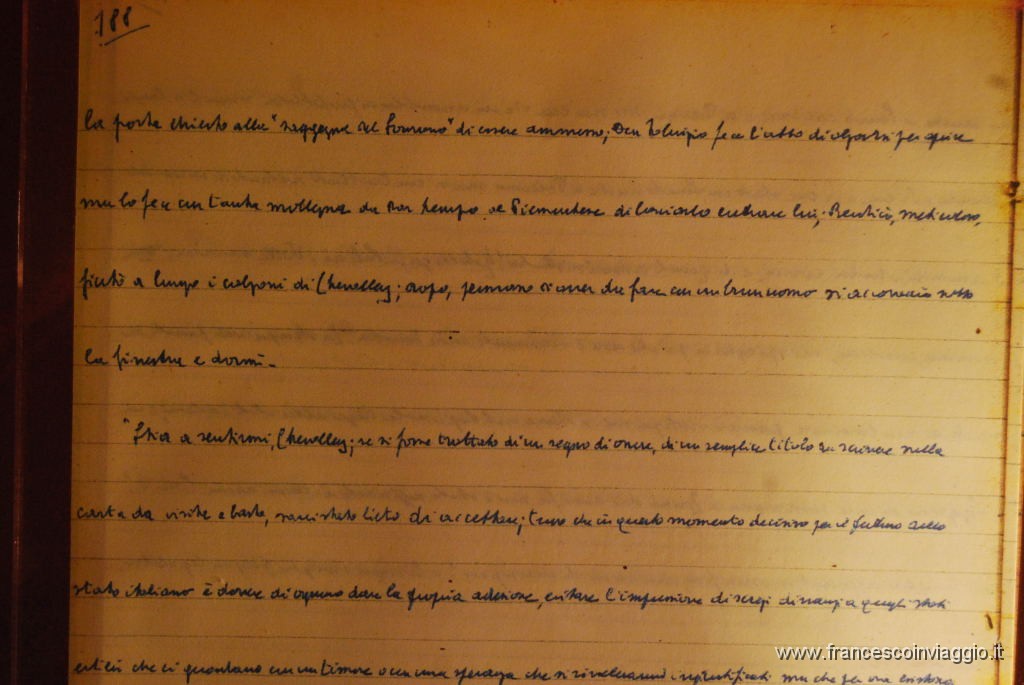 188
la porta chiese alla "ragazza del Sovrano" di essere ammesso; Don Fabrizio fece l'atto di alzarsi per aprire
ma lo fece con tanta mollezza da dar tempo al Piemontese di lasciarlo entrare lui; Bendicò, meticoloso,
fiutò a lungo i calzoni di Chevalley; dopo, persuaso di aver da fare con un buon uomo si accovacciò sotto
la finestra e dormì.
"Stia a sentirmi, Chevalley; se si fosse trattato di un segno di onore, di un semplice titolo da scrivere sulla
carta da visita e basta, sarei stato lieto di accettare; trovo che in questo momento decisivo per il futuro dello
stato italiano è dovere di ognuno dare la propria adesione, evitare l'impressione di screzi dinanzi a quegli stati
esteri che ci guardano con un timore o con una speranza che si riveleranno ingiustificati ma che per ora esistono
www.francescoinviaggio.it